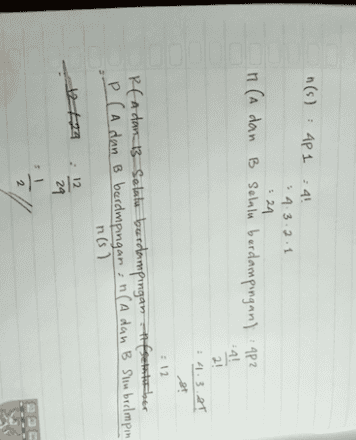 n(s) : 4P1 : 4!
: 4 3 . 2 . 1
: 24
n (A dan B selalu berdampingan) : 4P2
: 4!
2!
: 4 . 3 . 2!
2!
: 12
P (A dan B Selalu berdampingan = n (selalu ber
P (A dan B berdmpingan = n (A dan B Sllu brdmpin
n(s)
: 12 / 24 : 12
24
: 1
2